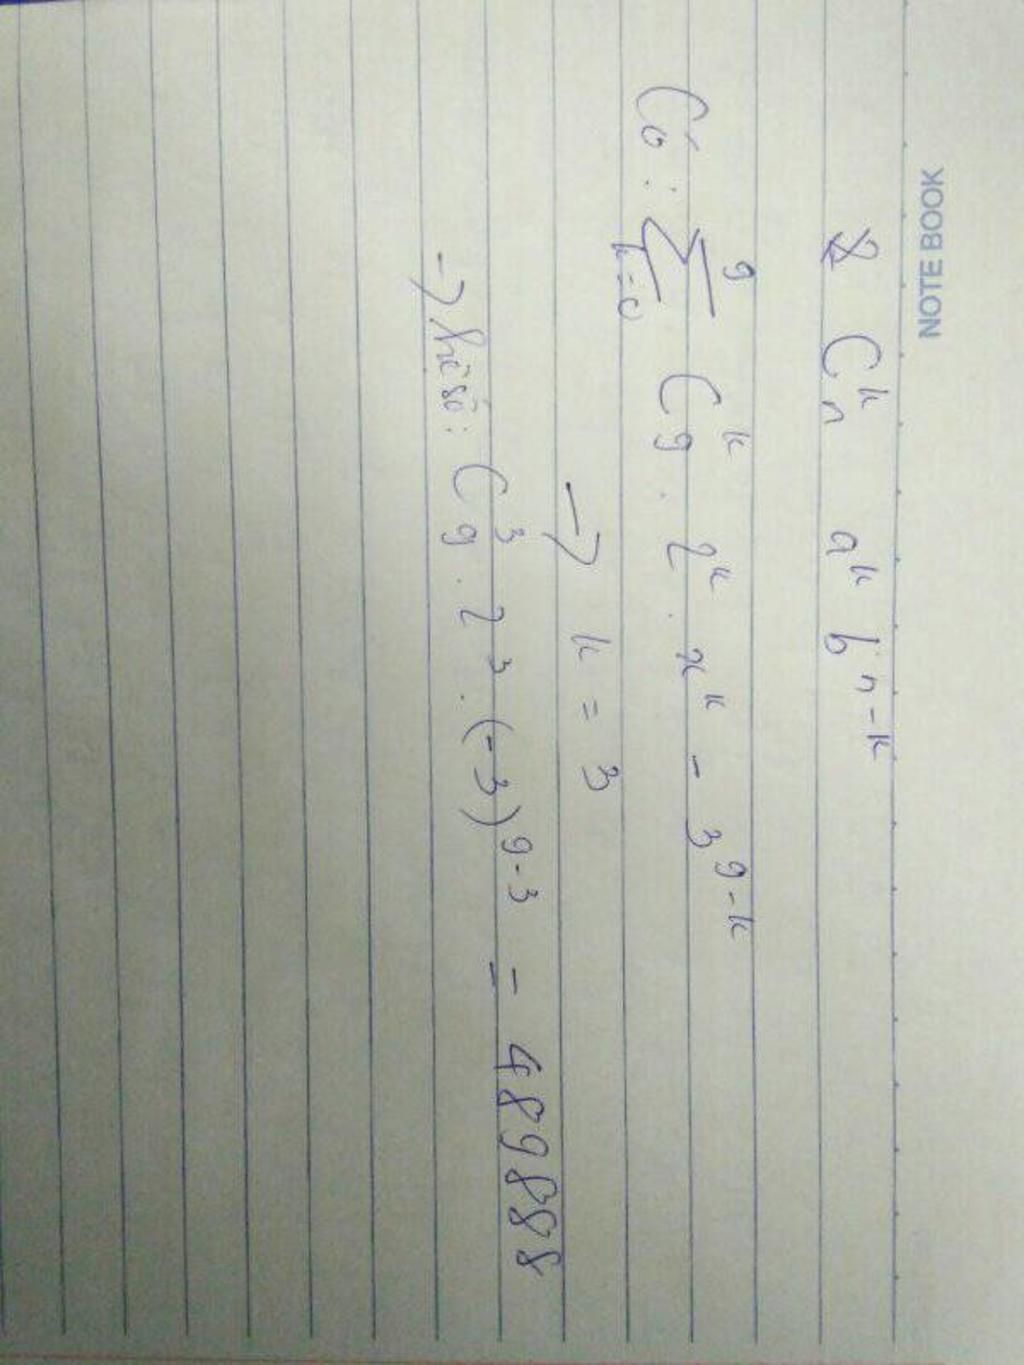 NOTE BOOK
& C_n^k a^k b^{n-k}
Có : \sum_{k=0}^{9} C_9^k . 2^k . x^k - 3^{9-k}
-> k = 3
-> hệ số: C_9^3 . 2^3 . (-3)^{9-3} = 489888